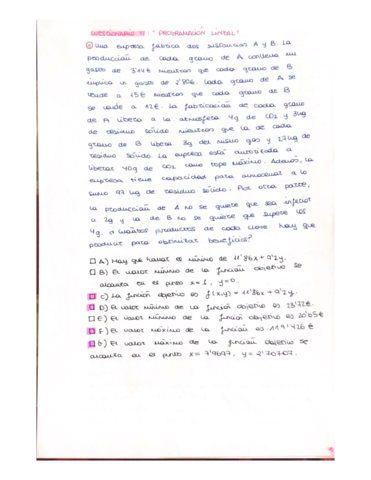 CUESTIONARIO 17: "PROGRAMACIÓN LINEAL"
Una empresa fabrica dos sustancias A y B. La
producción de cada gramo de A conlleva un
gasto de 3'14€ mientras que cada gramo de B
implica un gasto de 2'80€. Cada gramo de A se
vende a 15€ mientras que cada gramo de B
se vende a 12€. La fabricación de cada gramo
de A libera a la atmósfera 4g de CO2 y
de residuo sólido mientras que la de cada
gramo de B libera 3g del mismo gas y
residuo sólido. La empresa está autorizada a
liberar 40g de CO2 como tope máximo. Además, la
empresa tiene capacidad para almacenar a lo
sumo 97 kg de residuo sólido. Por otra parte,
la producción de A no se quiere que sea inferior
a 2g y la de B no se quiere que supere los
4g. ¿Cuántos productos de cada clase hay que
producir para obtener beneficios?
A) Hay que hallar el mínimo de 11'86x + 9'2y.
B) El valor mínimo de la función objetivo se
alcanza en el punto x=1, y=0.
C) La función objetivo es f(x,y) = 11'86x + 9'2y.
D) El valor mínimo de la función objetivo es 23'72€.
E) El valor mínimo de la función objetivo es 20'65€
F) El valor máximo de la función es 119'426€
El valor máximo de la función objetivo se
alcanza en el punto x = 7'9697, y = 2'70707.